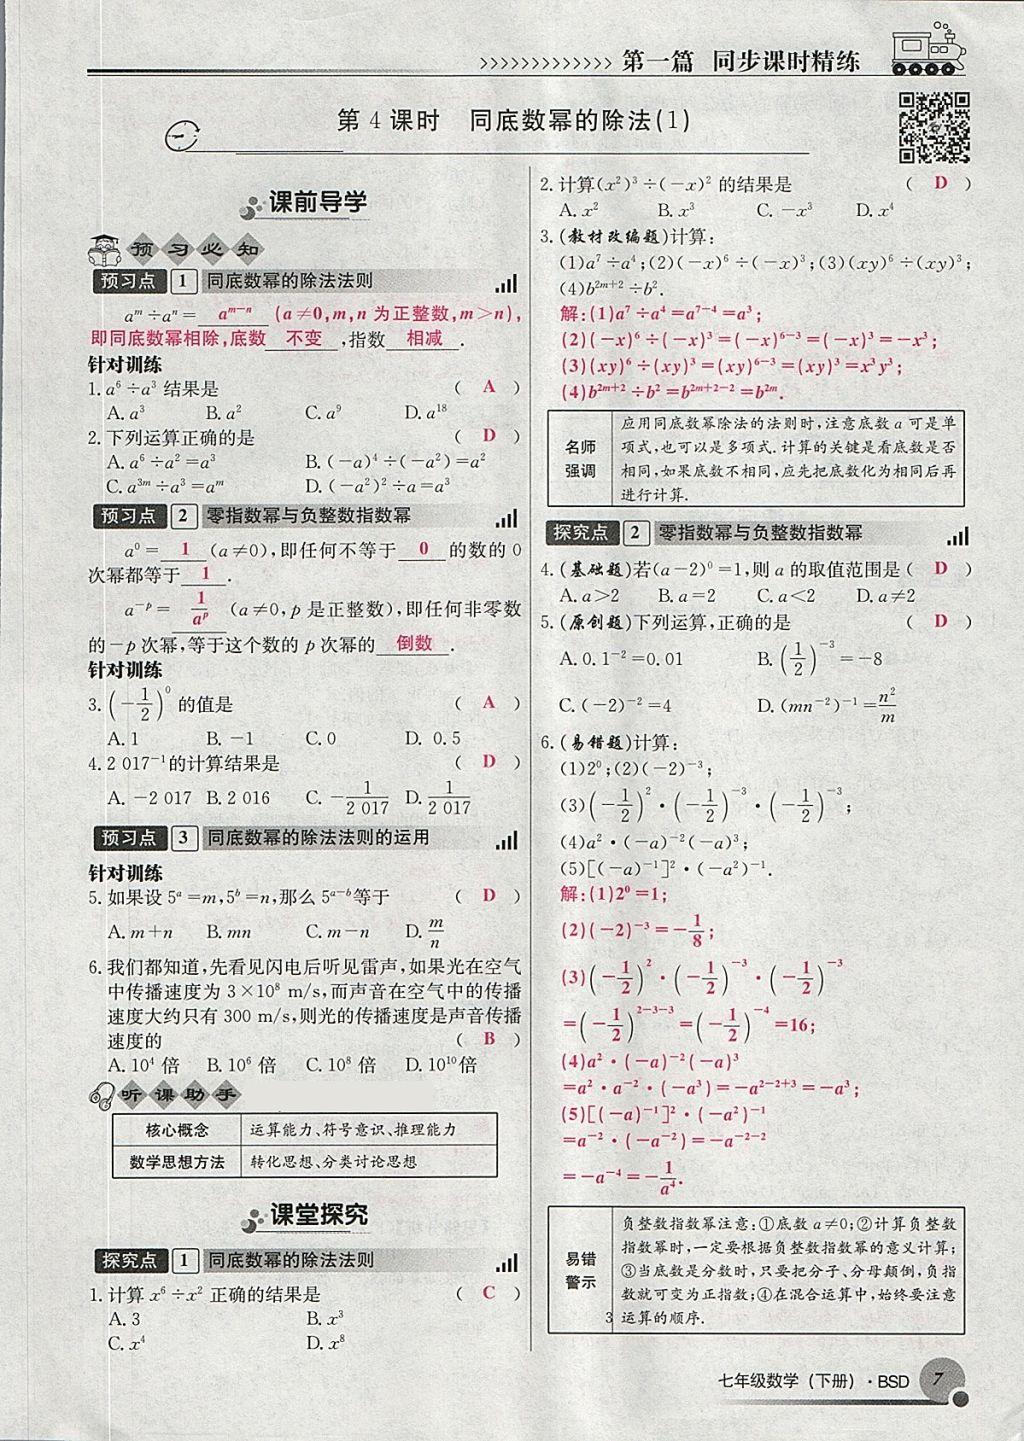 >>>>>>>>>>>>> 第一篇 同步课时精练
第 4 课时 同底数幂的除法(1)
课前导学
预习必知
预习点 1 同底数幂的除法法则
aᵐ÷aⁿ= aᵐ⁻ⁿ (a≠0,m,n 为正整数,m>n),
即同底数幂相除,底数 不变 ,指数 相减 .
针对训练
1. a⁶÷a³ 结果是 ( A )
A. a³ B. a² C. a⁹ D. a¹⁸
2. 下列运算正确的是 ( D )
A. a⁶÷a²=a³ B. (-a)⁴÷(-a²)=a²
C. a³ᵐ÷a³=aᵐ D. (-a²)²÷a=a³
预习点 2 零指数幂与负整数指数幂
a⁰= 1 (a≠0),即任何不等于 0 的数的 0
次幂都等于 1 .
a⁻ᵖ= 1/aᵖ (a≠0,p 是正整数),即任何非零数
的-p 次幂,等于这个数的 p 次幂的 倒数 .
针对训练
3. (-1/2)⁰ 的值是 ( A )
A. 1 B. -1 C. 0 D. 0.5
4. 2 017⁻¹的计算结果是 ( D )
A. -2 017 B. 2 016 C. -1/2 017 D. 1/2 017
预习点 3 同底数幂的除法法则的运用
针对训练
5. 如果设 5ᵃ=m,5ᵇ=n,那么 5ᵃ⁻ᵇ等于 ( D )
A. m+n B. mn C. m-n D. m/n
6. 我们都知道,先看见闪电后听见雷声,如果光在空气
中传播速度为 3×10⁸ m/s,而声音在空气中的传播
速度大约只有 300 m/s,则光的传播速度是声音传播
速度的 ( B )
A. 10⁴ 倍 B. 10⁶ 倍 C. 10⁸ 倍 D. 10¹⁰倍
听课助手
核心概念 运算能力、符号意识、推理能力
数学思想方法 转化思想、分类讨论思想
课堂探究
探究点 1 同底数幂的除法法则
1. 计算 x⁶÷x² 正确的结果是 ( C )
A. 3 B. x³
C. x⁴ D. x⁸
2. 计算(x²)³÷(-x)² 的结果是 ( D )
A. x² B. x³ C. -x³ D. x⁴
3. (教材改编题)计算:
(1)a⁷÷a⁴;(2)(-x)⁶÷(-x)³;(3)(xy)⁶÷(xy)³;
(4)b²ᵐ⁺²÷b².
解:(1)a⁷÷a⁴=a⁷⁻⁴=a³;
(2)(-x)⁶÷(-x)³=(-x)⁶⁻³=(-x)³=-x³;
(3)(xy)⁶÷(xy)³=(xy)⁶⁻³=(xy)³=x³y³;
(4)b²ᵐ⁺²÷b²=b²ᵐ⁺²⁻²=b²ᵐ.
名师
强调
应用同底数幂除法的法则时,注意底数 a 可是单
项式,也可以是多项式.计算的关键是看底数是否
相同,如果底数不相同,应先把底数化为相同后再
进行计算.
探究点 2 零指数幂与负整数指数幂
4. (基础题)若(a-2)⁰=1,则 a 的取值范围是 ( D )
A. a>2 B. a=2 C. a<2 D. a≠2
5. (原创题)下列运算,正确的是 ( D )
A. 0.1⁻²=0.01 B. (1/2)⁻³=-8
C. (-2)⁻²=4 D. (mn⁻²)⁻¹=n²/m
6. (易错题)计算:
(1)2⁰;(2)(-2)⁻³;
(3)(-1/2)²·(-1/2)⁻³·(-1/2)⁻³;
(4)a²·(-a)⁻²(-a)³;
(5)[(-a)⁻¹]²·(-a²)⁻¹.
解:(1)2⁰=1;
(2)(-2)⁻³=-1/8;
(3)(-1/2)²·(-1/2)⁻³·(-1/2)⁻³
=(-1/2)²⁻³⁻³=(-1/2)⁻⁴=16;
(4)a²·(-a)⁻²(-a)³
=a²·a⁻²·(-a³)=-a²⁻²⁺³=-a³;
(5)[(-a)⁻¹]²·(-a²)⁻¹
=a⁻²·(-a⁻²)=-a⁻²⁻²
=-a⁻⁴=-1/a⁴.
易错
警示
负整数指数幂注意:①底数 a≠0;②计算负整数
指数幂时,一定要根据负整数指数幂的意义计算;
③当底数是分数时,只要把分子、分母颠倒,负指
数就可变为正指数;④在混合运算中,始终要注意
运算的顺序.
3
七年级数学(下册)·BSD 7